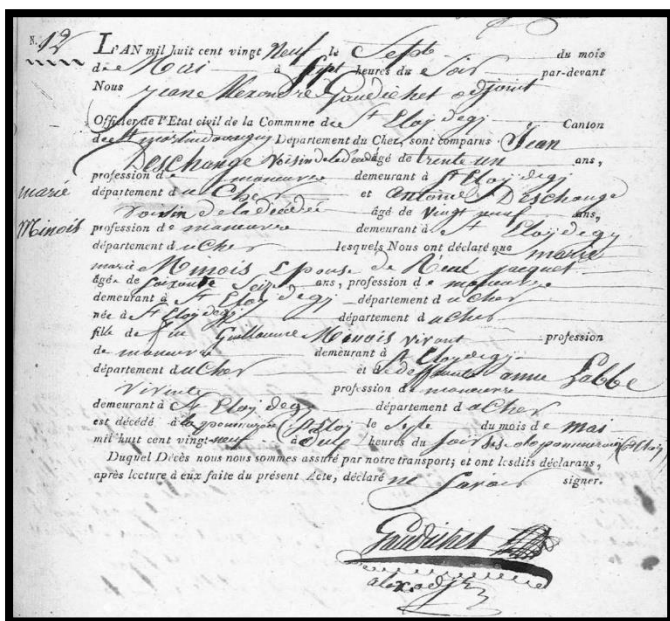 N. 12
L'AN mil huit cent vingt Neuf le Sept du mois
de Mai à Sept heures du Soir par-devant
Nous Jean Alexandre Gaudichet adjoint
Officier de l'Etat civil de la Commune de St Eloy de gy Canton
de St martin dauxigny Département du Cher, sont comparus Jean
Deschange Voisin de la décédé âgé de trente un ans,
profession de manœuvre demeurant à St Eloy de gy
département du Cher et antoine Deschange
voisin de la décédée âgé de vingt neuf ans,
profession de manœuvre demeurant à St Eloy de gy
département du Cher lesquels Nous ont déclaré que marie
marié Minois
marie Minois Epouse de Réné jacquet
âgée de soixante Seize ans, profession de manœuvre
demeurant à St Eloy de gy département du Cher
née à St Eloy de gy département du Cher
fille de feu Guillaume Minois vivant profession
de manœuvre demeurant à St Eloy de gy
département du Cher et de deffunte anne Labbe
vivente profession de manœuvre
demeurant à St Eloy de gy département du Cher
est décédé à St Eloy le Sept du mois de mai
mil huit cent vingt-neuf à heures du Soir
Duquel Décès nous nous sommes assuré par notre transport; et ont lesdits déclarans,
après lecture à eux faite du présent Acte, déclaré ne Savoir signer.
Gaudichet
alex adj